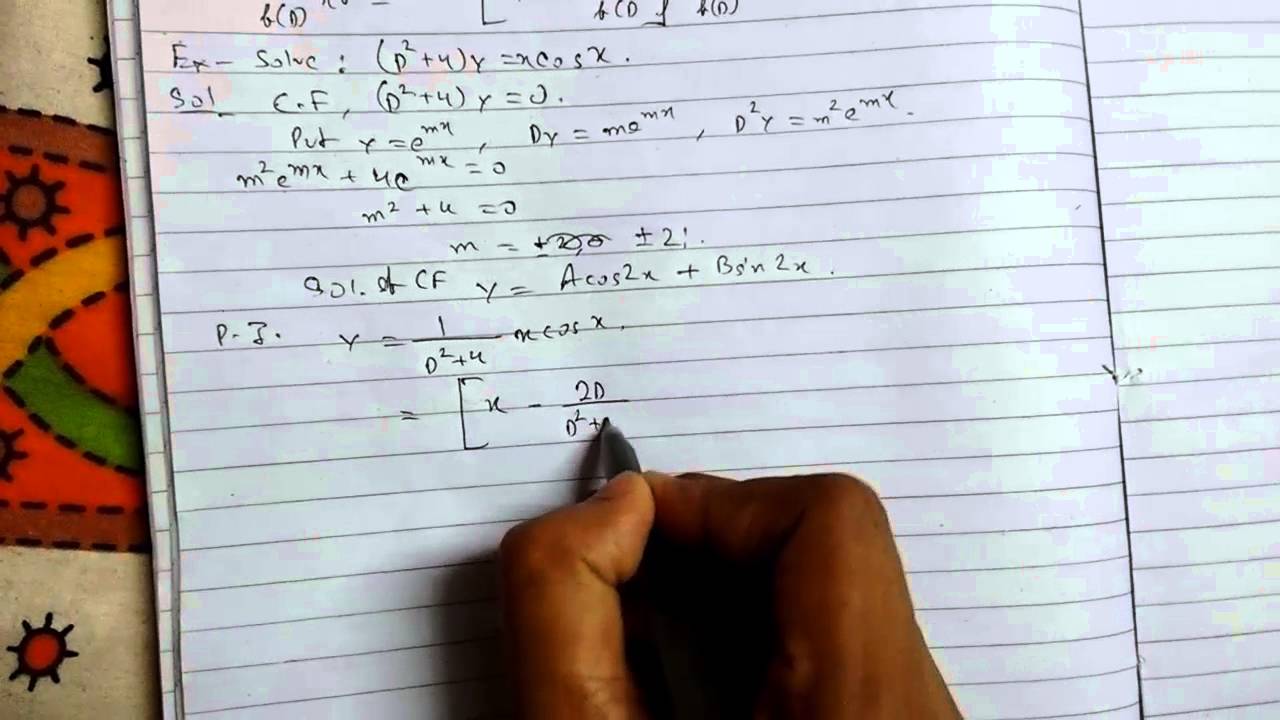 f(D) = [ f(D) ] f(D)
Ex - Solve : (D²+4)y = x cos x.
Sol. C.F, (D²+4) y = 0.
Put y = e^{mx}, Dy = me^{mx}, D²y = m²e^{mx}.
m²e^{mx} + 4e^{mx} = 0
m² + 4 = 0
m = ± 2i.
Sol. of CF y = A cos 2x + B sin 2x.
P.I. y = 1/(D²+4) x cos x.
= [ x - 2D/(D²+